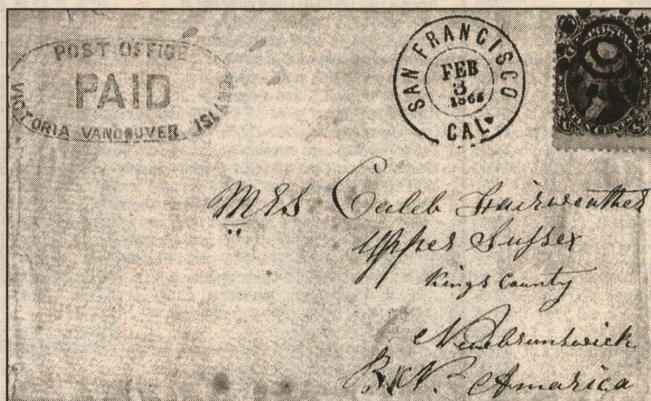 POST OFFICE
PAID
VICTORIA VANCOUVER ISLAND
SAN FRANCISCO
FEB
3
CAL
Mrs Caleb Fairweather
Upper Sussex
Kings County
Newbrunswick
B.N. America